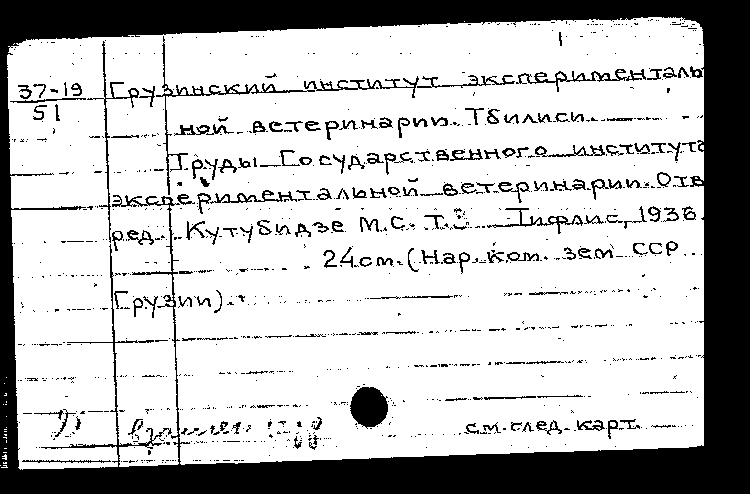 37-19 Грузинский институт эксперименталь
51
ной ветеринарии. Тбилиси.
Труды Государственного института
экспериментальной ветеринарии. Отв
ред. Кутубидзе М.С. Т.3 Тифлис, 1936.
24 см. (Нар. ком. зем ССР
Грузии).
взамен
см. след. карт.